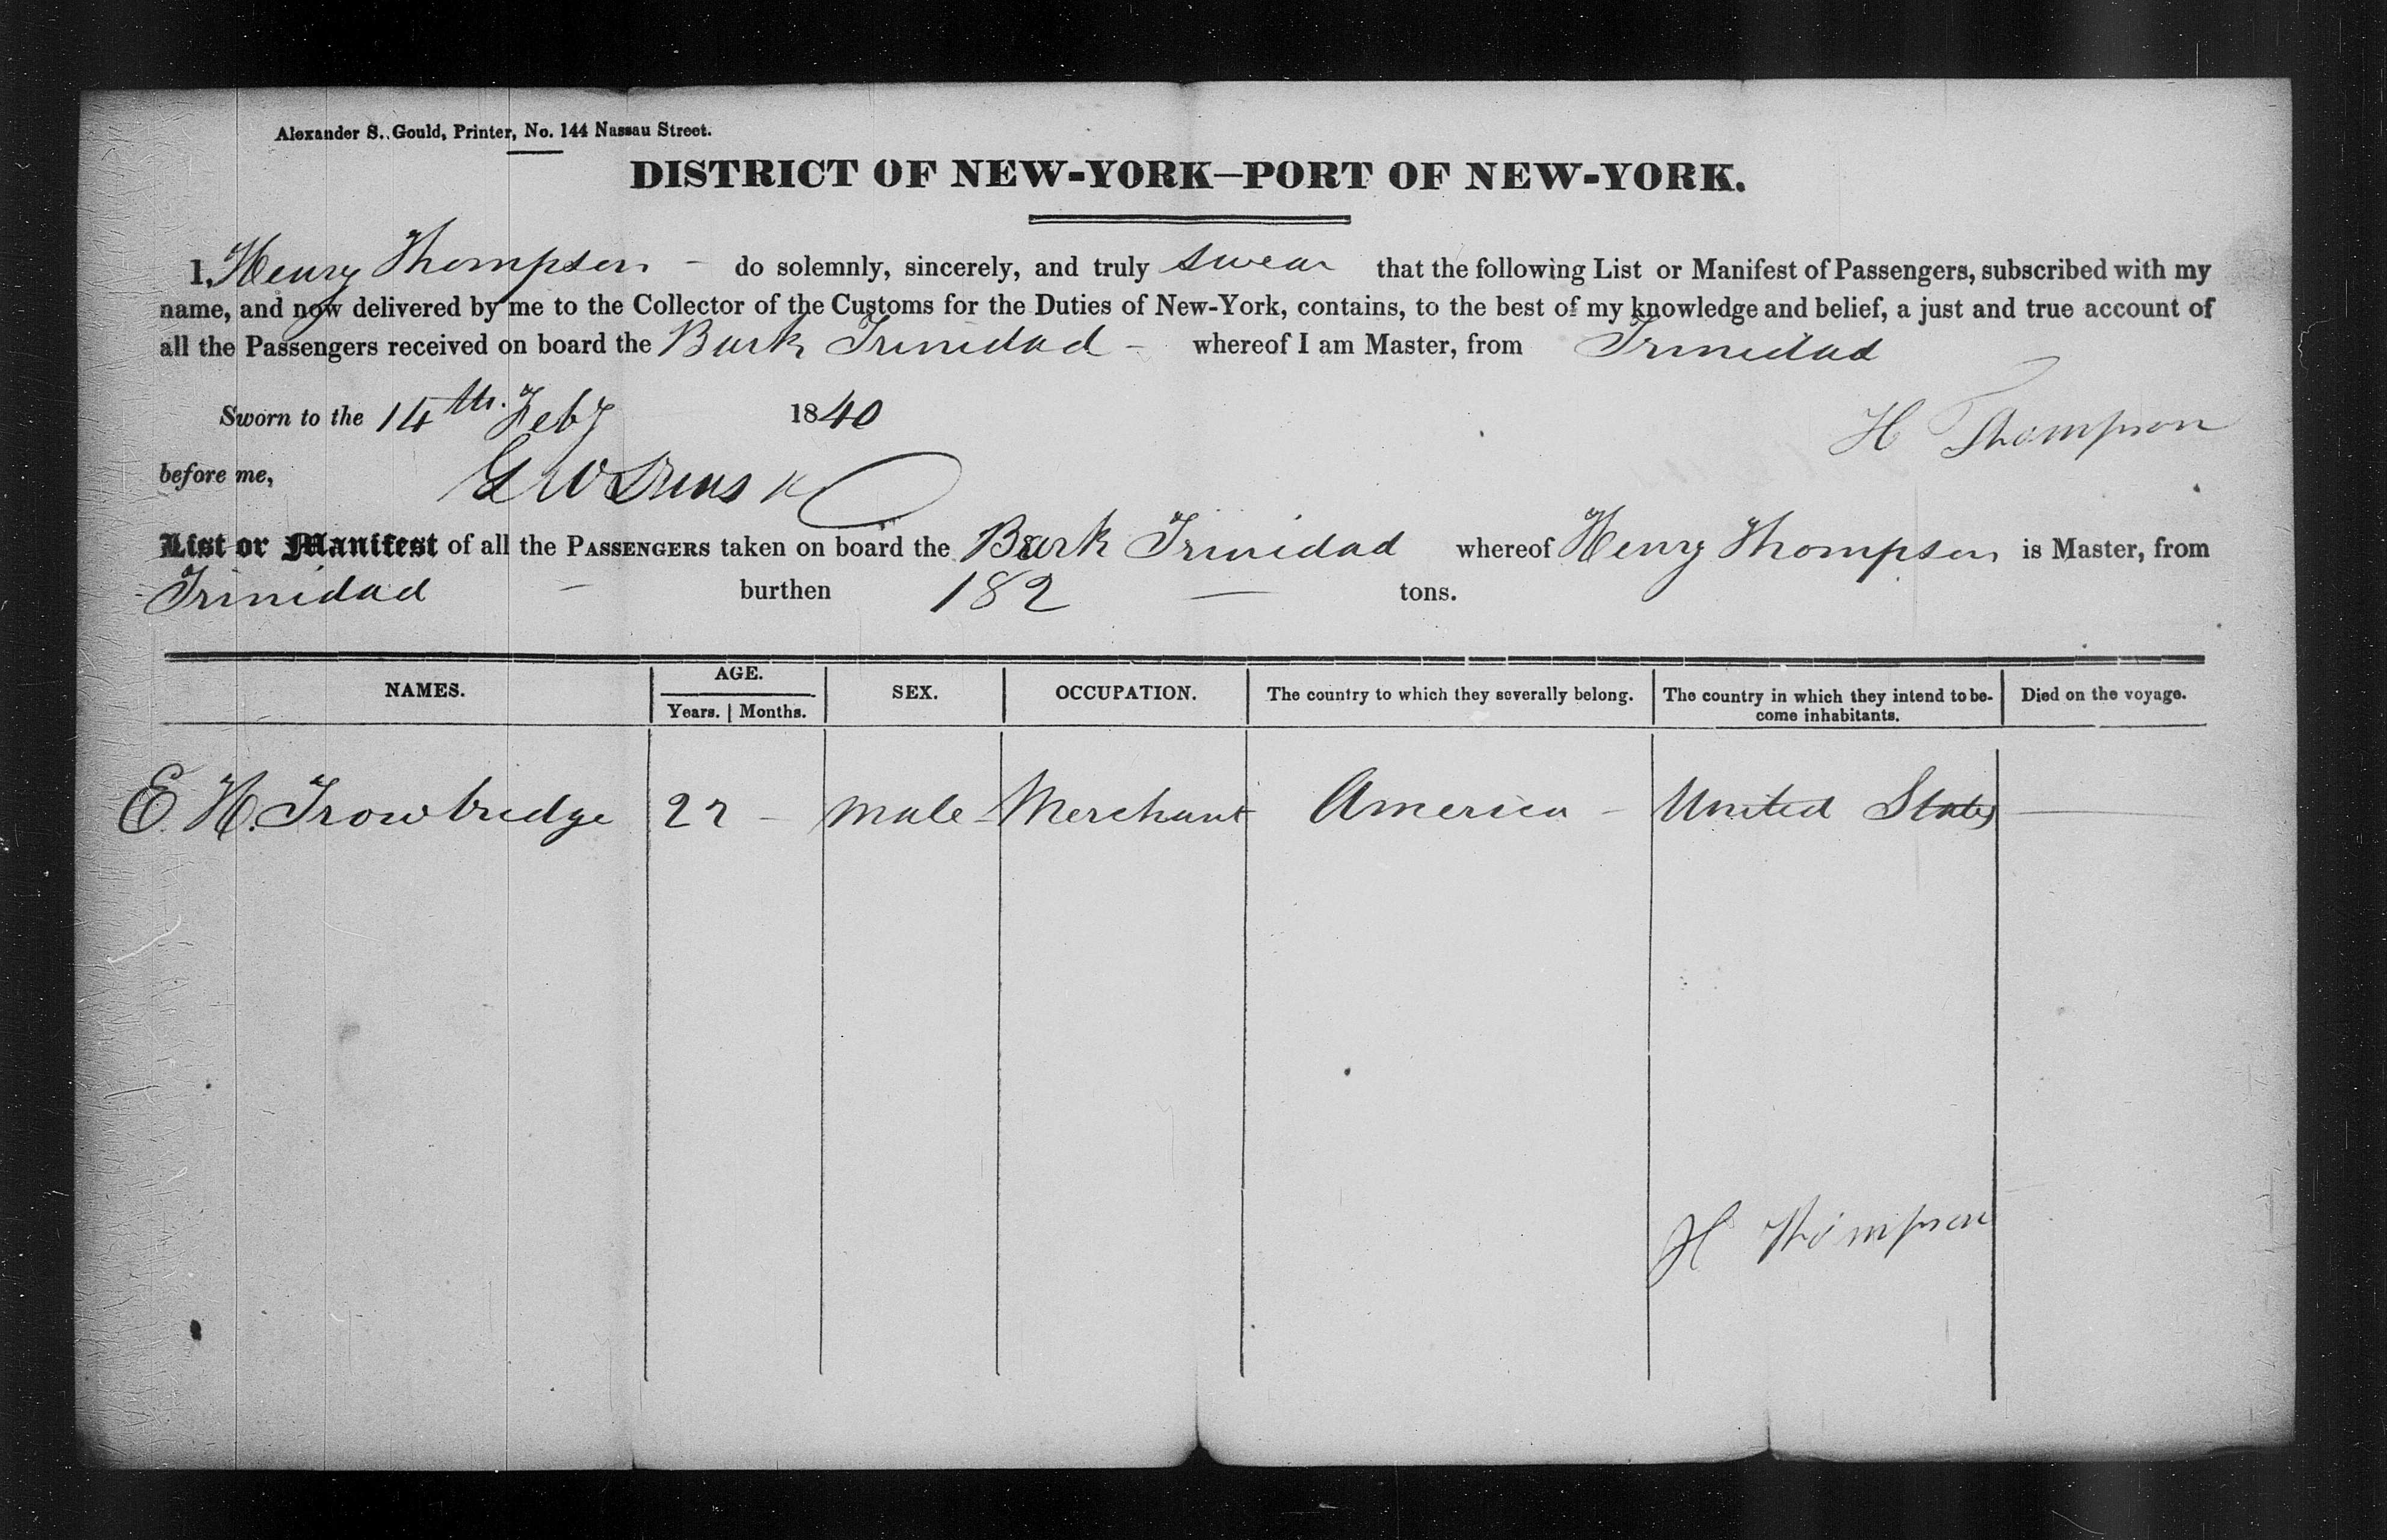 Alexander S. Gould, Printer, No. 144 Nassau Street.
DISTRICT OF NEW-YORK—PORT OF NEW-YORK.
I, Henry Thompson - do solemnly, sincerely, and truly swear that the following List or Manifest of Passengers, subscribed with my
name, and now delivered by me to the Collector of the Customs for the Duties of New-York, contains, to the best of my knowledge and belief, a just and true account of
all the Passengers received on board the Bark Trinidad - whereof I am Master, from Trinidad
Sworn to the 14th. Feby 1840
H Thompson
before me,
List or Manifest of all the PASSENGERS taken on board the Bark Trinidad whereof Henry Thompson is Master, from
Trinidad - burthen 182 — tons.
NAMES. AGE. SEX. OCCUPATION. The country to which they severally belong. The country in which they intend to be- Died on the voyage.
Years. | Months. come inhabitants.
E. H. Trowbridge 22 - male - Merchant America - United States —
H Thompson